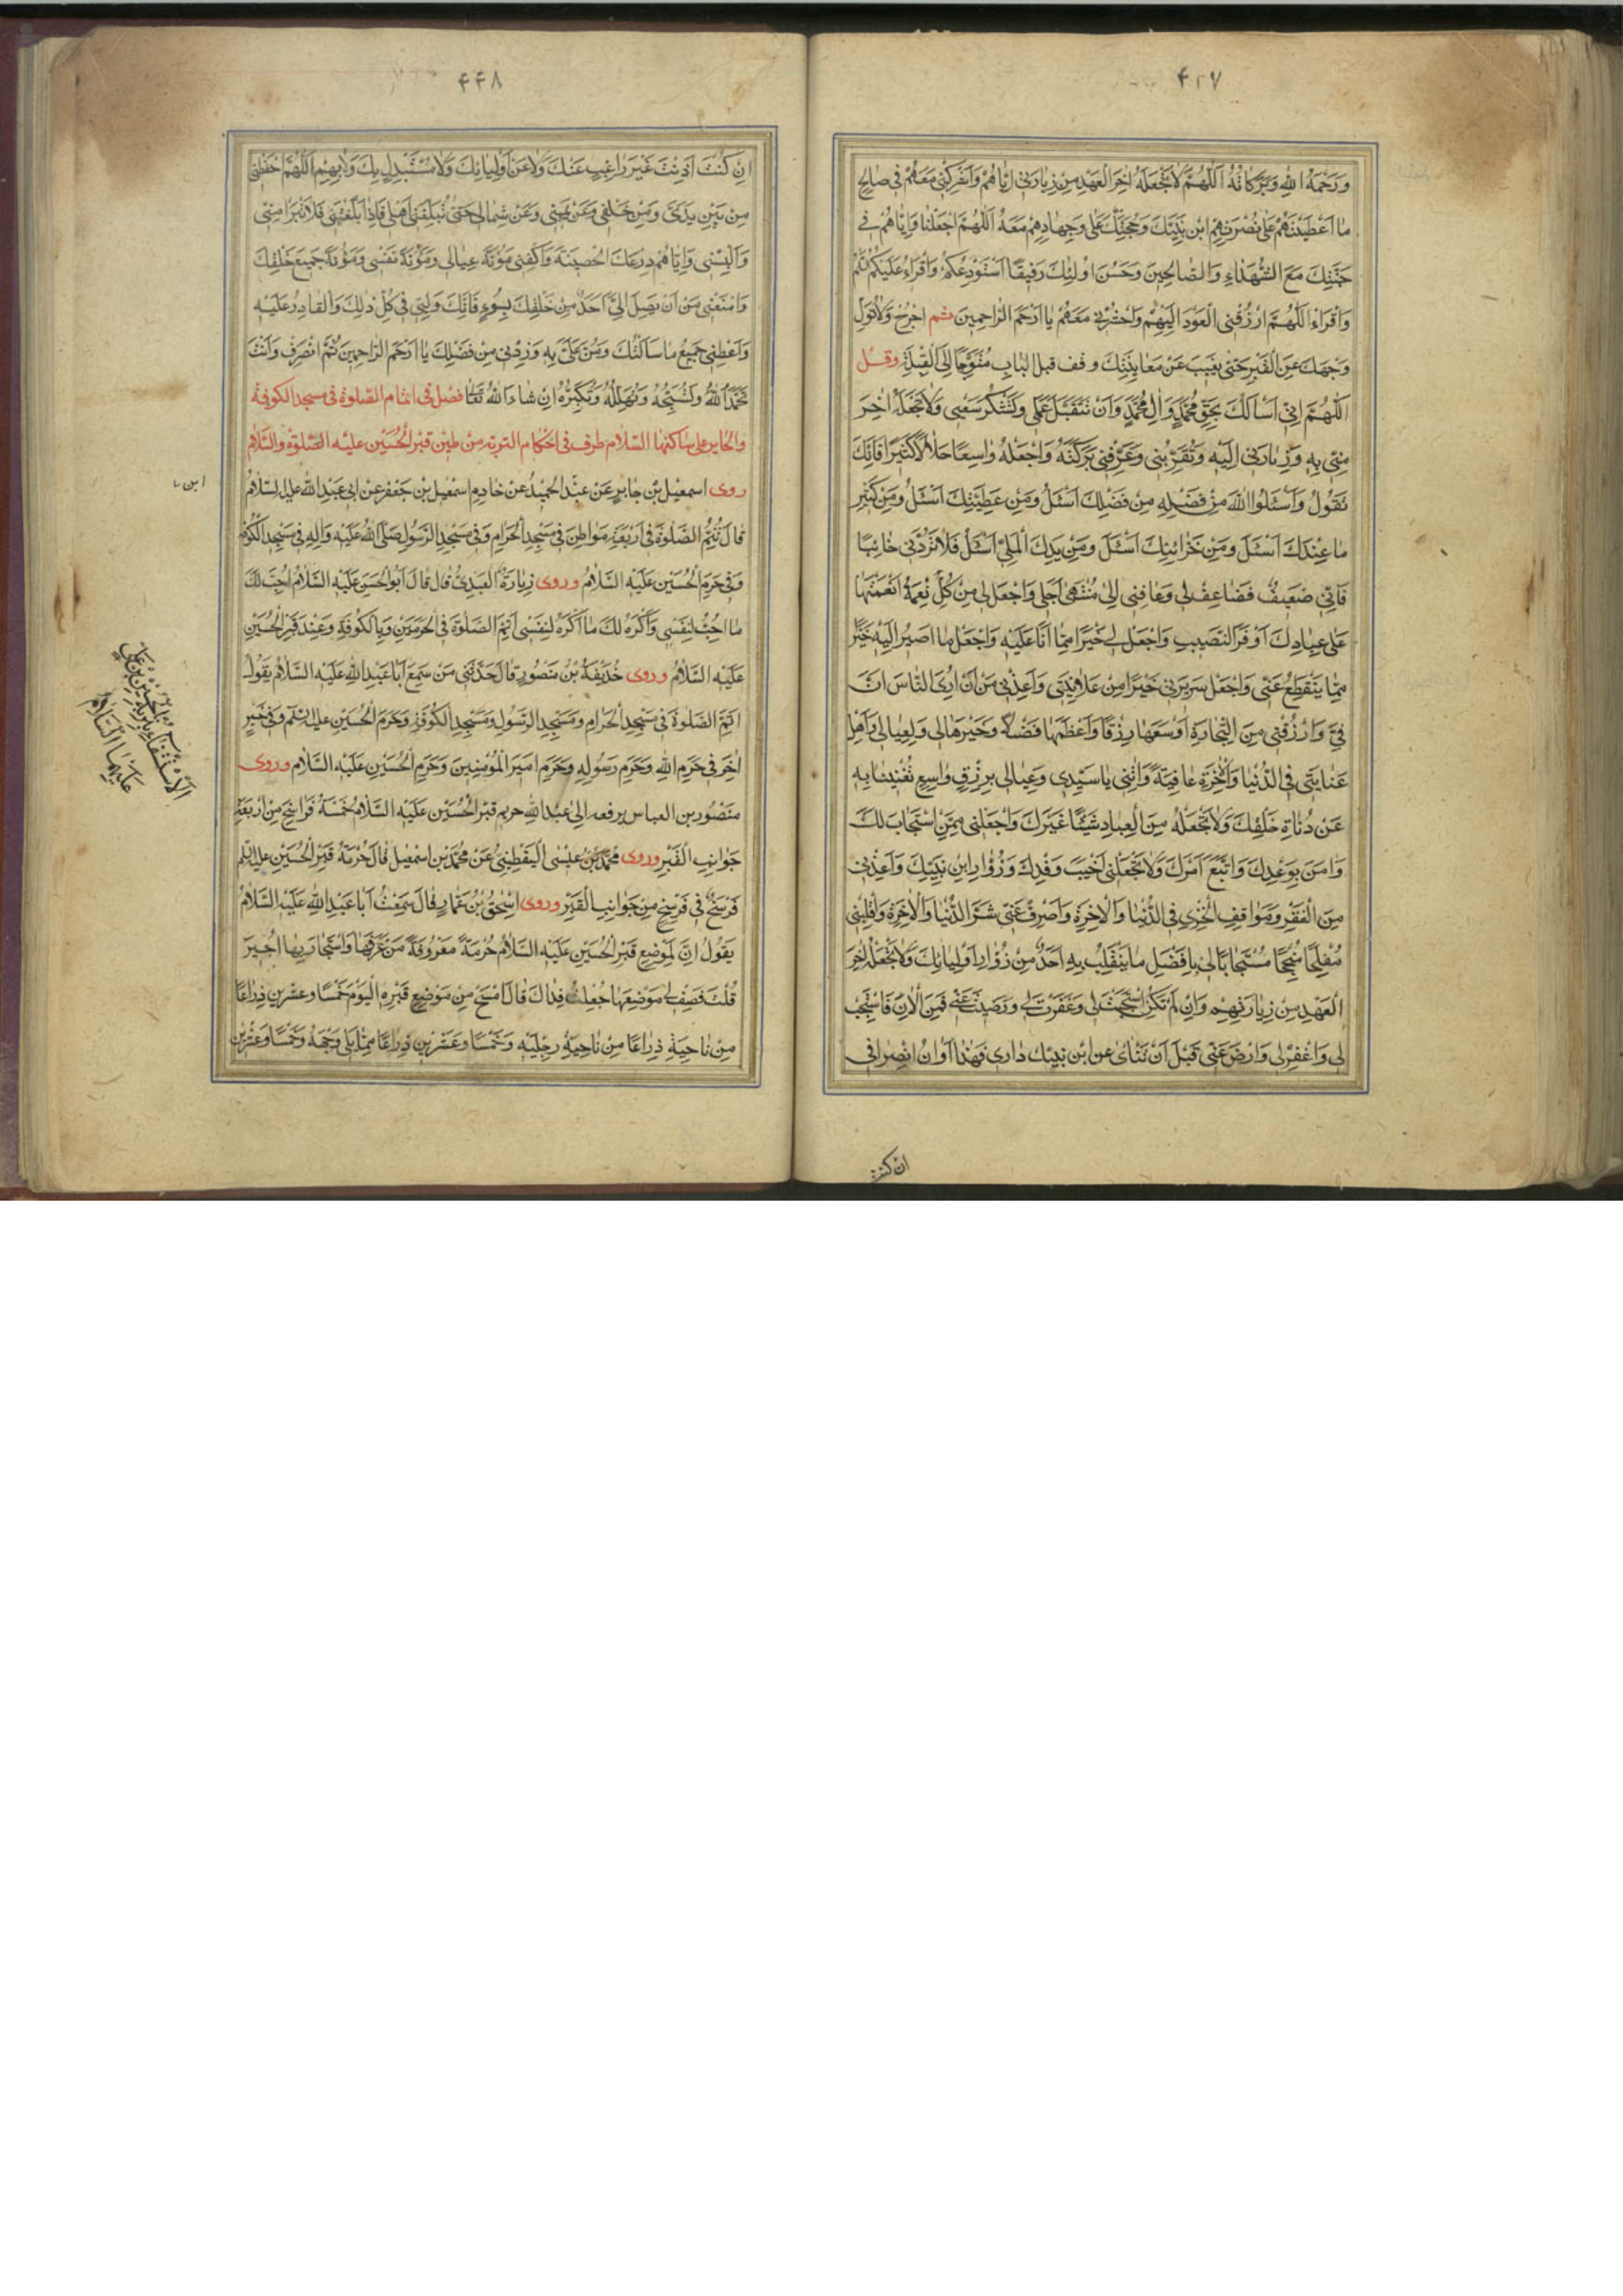 ۴۴۷
وَرَحْمَةُ اللّٰهِ وَبَرَكَاتُهُ اَللّٰهُمَّ لَا تَجْعَلْهُ اٰخِرَ الْعَهْدِ مِنْ زِيَارَتِى اِيَّاهُمْ وَاَشْرِكْنِى مَعَهُمْ فِى صَالِحِ
مَا اَعْطَيْتَهُمْ عَلٰى نُصْرَتِهِمْ ابْنَ نَبِيِّكَ وَحُجَّتَكَ عَلٰى وَجِهَادِهِمْ مَعَهُ اَللّٰهُمَّ اجْعَلْنَا وَاِيَّاهُمْ فِى
جَنَّتِكَ مَعَ الشُّهَدَاءِ وَالصَّالِحِينَ وَحَسُنَ اُولٰئِكَ رَفِيقًا اَسْتَوْدِعُكُمُ وَاَقْرَاءُ عَلَيْكُمُ السَّلَمَ
وَاَقْرَاءُ اَللّٰهُمَّ ارْزُقْنِى الْعَوْدَ اِلَيْهِمْ وَاحْشُرْنِى مَعَهُمْ يَا اَرْحَمَ الرَّاحِمِينَ ثم اخْرُجْ وَلَا تُوَلِّ
وَجْهَكَ عَنِ الْقَبْرِ حَتّٰى يَغِيبَ عَنْ مُعَايَنَتِكَ وقف قبل الباب مُتَوَجِّهًا اِلَى الْقِبْلَةِ وقل
اَللّٰهُمَّ اِنِّى اَسْاَلُكَ بِحَقِّ مُحَمَّدٍ وَاٰلِ مُحَمَّدٍ وَاَنْ تَتَقَبَّلَ عَمَلِى وَتَشْكُرَ سَعْيِى وَلَا تَجْعَلْهُ اٰخِرَ
مِنِّى بِهِ وَزِيَارَتِى اِلَيْهِ وَتُقَرِّبَنِى وَعَرِّفْنِى بَرَكَتَهُ وَاجْعَلْهُ وَاسِعًا حَلَالًا كَثِيرًا فَاِنَّكَ
تَقُولُ وَاسْئَلُوا اللّٰهَ مِنْ فَضْلِهِ مِنْ فَضْلِكَ اَسْئَلُ وَمِنْ عَطِيَّتِكَ اَسْئَلُ وَمِنْ كَثِيرِ
مَا عِنْدَكَ اَسْئَلُ وَمِنْ خَزَائِنِكَ اَسْئَلُ وَمِنْ يَدِكَ الْمَلِئِ اَسْئَلُ فَلَا تَرُدَّنِى خَائِبًا
فَاِنِّى ضَعِيفٌ فَضَاعِفْ لِى وَعَافِنِى اِلٰى مُنْتَهٰى اَجَلِى وَاجْعَلْ لِى مِنْ كُلِّ نِعْمَةٍ اَنْعَمْتَهَا
عَلٰى عِبَادِكَ اَوْفَرَ النَّصِيبِ وَاجْعَلْ لِى خَيْرًا مِمَّا اَنَا عَلَيْهِ وَاجْعَلْ مَا اَصِيرُ اِلَيْهِ خَيْرًا
مِمَّا يَنْقَطِعُ عَنِّى وَاجْعَلْ سَرِيرَتِى خَيْرًا مِنْ عَلَانِيَتِى وَاَعِذْنِى مِنْ اَنْ اُرِىَ النَّاسَ اَنَّ
فِىَّ وَارْزُقْنِى مِنَ التِّجَارَةِ اَوْسَعَهَا رِزْقًا وَاَعْظَمَهَا فَضْلًا وَخَيْرَهَا لِى وَلِعِيَالِى وَاَهْلِ
عِنَايَتِى فِى الدُّنْيَا وَالْاٰخِرَةِ عَافِيَةً وَاٰتِنِى يَا سَيِّدِى وَعِيَالِى بِرِزْقٍ وَاسِعٍ تُغْنِينَا بِهِ
عَنْ دُنَاةِ خَلْقِكَ وَلَا تَجْعَلْهُ مِنَ الْعِبَادِ شَيْئًا غَيْرَكَ وَاجْعَلْنِى مِمَّنِ اسْتَجَابَ لَكَ
وَاٰمَنَ بِوَعْدِكَ وَاتَّبَعَ اَمْرَكَ وَلَا تَجْعَلْنِى اَخْيَبَ وَفْدِكَ وَزُوَّارِ ابْنِ نَبِيِّكَ وَاَعِذْنِى
مِنَ الْفَقْرِ وَمَوَاقِفِ الْخِزْىِ فِى الدُّنْيَا وَالْاٰخِرَةِ وَاصْرِفْ عَنِّى شَرَّ الدُّنْيَا وَالْاٰخِرَةِ وَاقْلِبْنِى
مُفْلِحًا مُنْجِحًا مُسْتَجَابًا لِى بِاَفْضَلِ مَا يَنْقَلِبُ بِهِ اَحَدٌ مِنْ زُوَّارِ اَوْلِيَائِكَ وَلَا تَجْعَلْهُ اٰخِرَ
الْعَهْدِ مِنْ زِيَارَتِهِمْ وَاِنْ لَمْ تَكُنِ اسْتَجَبْتَ لِى وَغَفَرْتَ لِى وَرَضِيتَ عَنِّى فَمِنَ الْاٰنِ فَاسْتَجِبْ
لِى وَاغْفِرْ لِى وَارْضَ عَنِّى قَبْلَ اَنْ تَنْاٰى عَنِ ابْنِ نَبِيِّكَ دَارِى فَهٰذَا اَوَانُ انْصِرَافِى
ان كنت
۴۴۸
اِنْ كُنْتَ اَذِنْتَ غَيْرَ رَاغِبٍ عَنْكَ وَلَا عَنْ اَوْلِيَائِكَ وَلَا مُسْتَبْدِلٍ بِكَ وَلَا بِهِمْ اَللّٰهُمَّ احْفَظْنِى
مِنْ بَيْنِ يَدَىَّ وَمِنْ خَلْفِى وَعَنْ يَمِينِى وَعَنْ شِمَالِى حَتّٰى تُبَلِّغَنِى اَهْلِى فَاِذَا بَلَّغْتَنِى فَلَا تَبْرَا مِنِّى
وَاَلْبِسْنِى وَاِيَّاهُمْ دِرْعَكَ الْحَصِينَةَ وَاكْفِنِى مَؤُنَةَ عِيَالِى وَمَؤُنَةَ نَفْسِى وَمَؤُنَةَ جَمِيعِ خَلْقِكَ
وَامْنَعْنِى مِنْ اَنْ يَصِلَ اِلَىَّ اَحَدٌ مِنْ خَلْقِكَ بِسُوءٍ فَاِنَّكَ وَلِيِّى فِى كُلِّ ذٰلِكَ وَالْقَادِرُ عَلَيْهِ
وَاَعْطِنِى جَمِيعَ مَا سَاَلْتُكَ وَمُنَّ عَلَىَّ بِهِ وَزِدْنِى مِنْ فَضْلِكَ يَا اَرْحَمَ الرَّاحِمِينَ ثُمَّ انْصَرِفْ وَاَنْتَ
تَحْمَدُ اللّٰهَ وَتُسَبِّحُهُ وَتُهَلِّلُهُ وَتُكَبِّرُهُ اِنْ شَاءَ اللّٰهُ تَعَالٰى فصل فى اتمام الصّلوة فى مسجد الكوفة
والحاير على ساكنها السّلام طرف فى احكام التربة من طين قبر الحُسَيْن عليه الصّلوة والسّلام
روى اسمعيل بْن جابرٍ عَنْ عبْد الحَمِيدِ عَنْ خادِم اسْمٰعيل بْن جَعْفَر عَنْ ابى عَبْدِ اللّٰه عليه السّلام
قالَ تُتِمُّ الصَّلوةَ فى اَرْبَعَةِ مَواطِنَ فى مَسْجِدِ الْحَرامِ وَفى مَسْجِدِ الرَّسُولِ صَلَّى اللّٰهُ عَلَيْهِ وَالِهِ فى مَسْجِدِ الْكُوفَةِ
وَفى حَرَمِ الْحُسَيْن عَلَيْهِ السَّلامُ وروى زِيارَةُ الْعَبْدِىُّ قال قالَ اَبُو الْحَسَنِ عَلَيْهِ السَّلامُ اُحِبُّ لَكَ
ما اُحِبُّ لِنَفْسِى وَاَكْرَهُ لَكَ ما اَكْرَهُ لِنَفْسِى اَتِمَّ الصَّلوةَ فى الْحَرَمَيْنِ وَبِالْكُوفَةِ وَعِنْدَ قَبْرِ الْحُسَيْنِ
عَلَيْهِ السَّلامُ وروى حُذَيْفَةُ بْنُ مَنْصُورٍ قالَ حَدَّثَنِى مَنْ سَمِعَ اَبا عَبْدِ اللّٰهِ عَلَيْهِ السَّلامُ يَقُولُ
اَتِمَّ الصَّلوةَ فى مَسْجِدِ الْحَرامِ وَمَسْجِدِ الرَّسُولِ وَمَسْجِدِ الْكُوفَةِ وَحَرَمِ الْحُسَيْنِ عليه السّلم وفى خَبَرٍ
اخَرَ فى حَرَمِ اللّٰهِ وَحَرَمِ رَسُولِهِ وَحَرَمِ اَمِيرِ الْمُؤْمِنِينَ وَحَرَمِ الْحُسَيْنِ عَلَيْهِ السَّلام وروى
مَنْصُور بن العباس يرفعه الى عَبْدِ اللّٰهِ حريم قبْرِ الْحُسَيْن عَلَيْهِ السَّلام خَمْسَةُ فَراسِخَ مِنْ اَرْبَعَةِ
جَوانِبِ الْقَبْرِ وروى مُحَمَّدُ بْنُ عيسَى الْيَقْطِينِىُّ عَنْ مُحَمَّدِ بْن اسْمٰعيل قالَ حُرْمَةُ قَبْرِ الْحُسَيْنِ عليه السّلم
فَرْسَخٌ فى فَرْسَخٍ مِنْ جَوانِبِ الْقَبْرِ وروى اِسْحٰقُ بْنُ عَمّارٍ قالَ سَمِعْتُ اَبا عَبْدِ اللّٰهِ عَلَيْهِ السَّلامُ
يَقُولُ اِنَّ لِمَوْضِعِ قَبْرِ الْحُسَيْنِ عَلَيْهِ السَّلامُ حُرْمَةً مَعْرُوفَةً مَنْ عَرَفَها وَاسْتَجارَ بِها اُجِيرَ
قُلْتُ فَصِفْ لى مَوْضِعَها جُعِلْتُ فِداكَ قالَ امْسَحْ مِنْ مَوْضِعِ قَبْرِهِ الْيَوْمَ خَمْسًا وعشْرين ذِراعًا
مِنْ ناحِيَةِ ذِراعًا مِنْ ناحِيَةِ رِجْلَيْهِ وَخَمْسًا وَعشْرين ذِراعًا مِمّا يَلِى وَجْهَهُ وَخَمْسًا وَعِشْرينَ
ابن
الاسْتشفاء بتربة الحُسين بن علىّ
عَلَيْهِمَا السَّلام